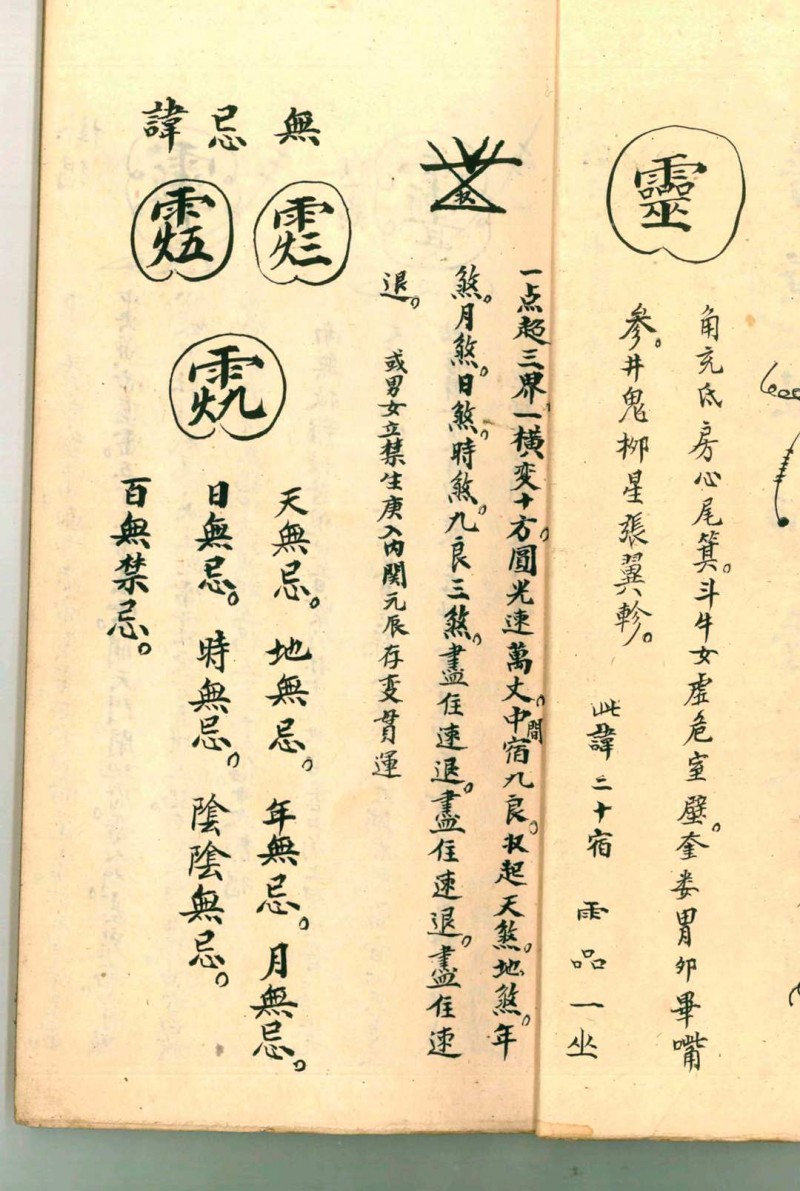 靈
角亢氐房心尾箕。斗牛女虛危室壁。奎娄胃卯畢嘴
參。井鬼柳星張翼軫。
此諱二十宿　雨品一坐
一点起三界。一橫变十方。圓光速萬丈。中間宿九良。扠起天煞。地煞。年
煞。月煞。日煞。時煞。九良三煞。盡住速退。盡住速退。盡住速
退。
或男女立禁生庚入內関元辰存变貫運
無忌諱
天無忌。地無忌。年無忌。月無忌。
日無忌。時無忌。陰陰無忌。
百無禁忌。